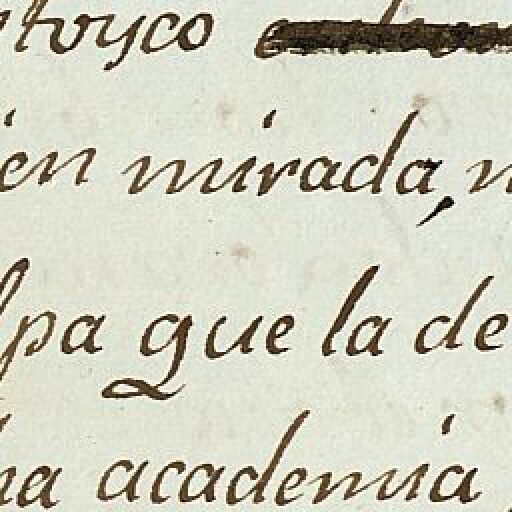 ien mirada, n
lpa que la de
ha academia